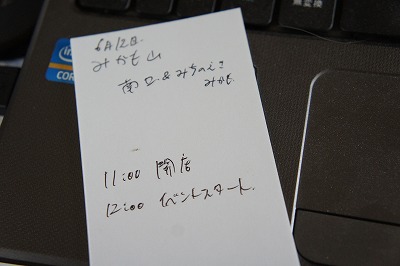 6月12日
みかも山
南口&みちのえき
みかも
11:00 開店
12:00 イベントスタート.
intel
CORE
無変換